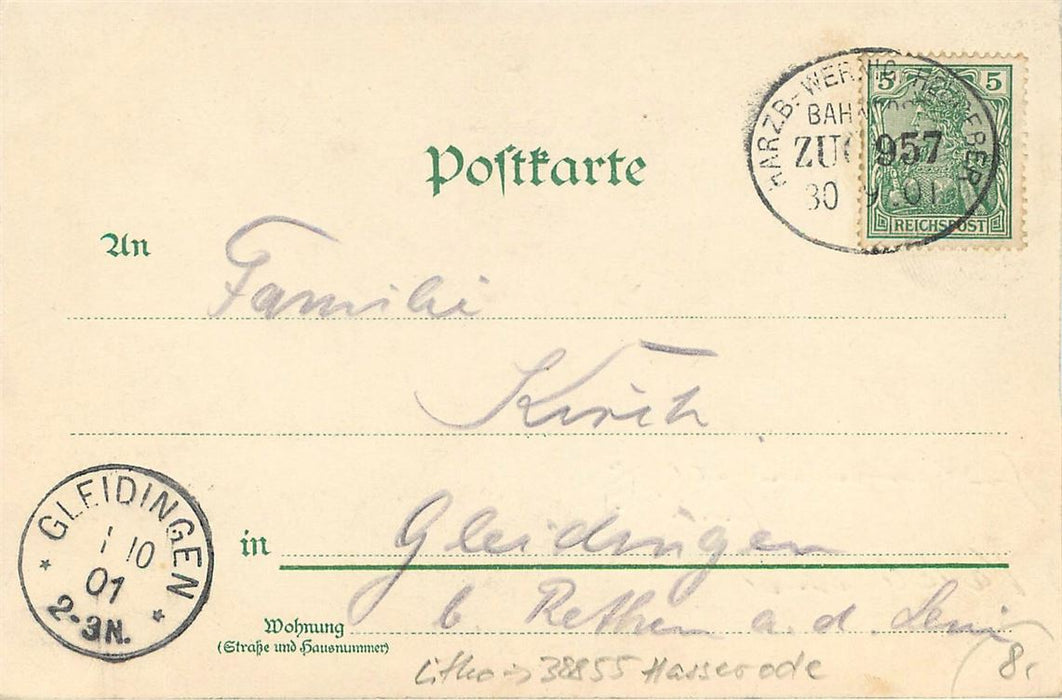 HARZB.-WERNIG.-HEUDEBER
BAHNPOST
ZUG 957
30 9 01
5 5
REICHSPOST
Postkarte
An
Familie
in Gleidingen
b. Rethen a. d. Leine
Wohnung
(Straße und Hausnummer)
GLEIDINGEN
1 10
01
2-3N.
Litho 38855 Hasserode
8,